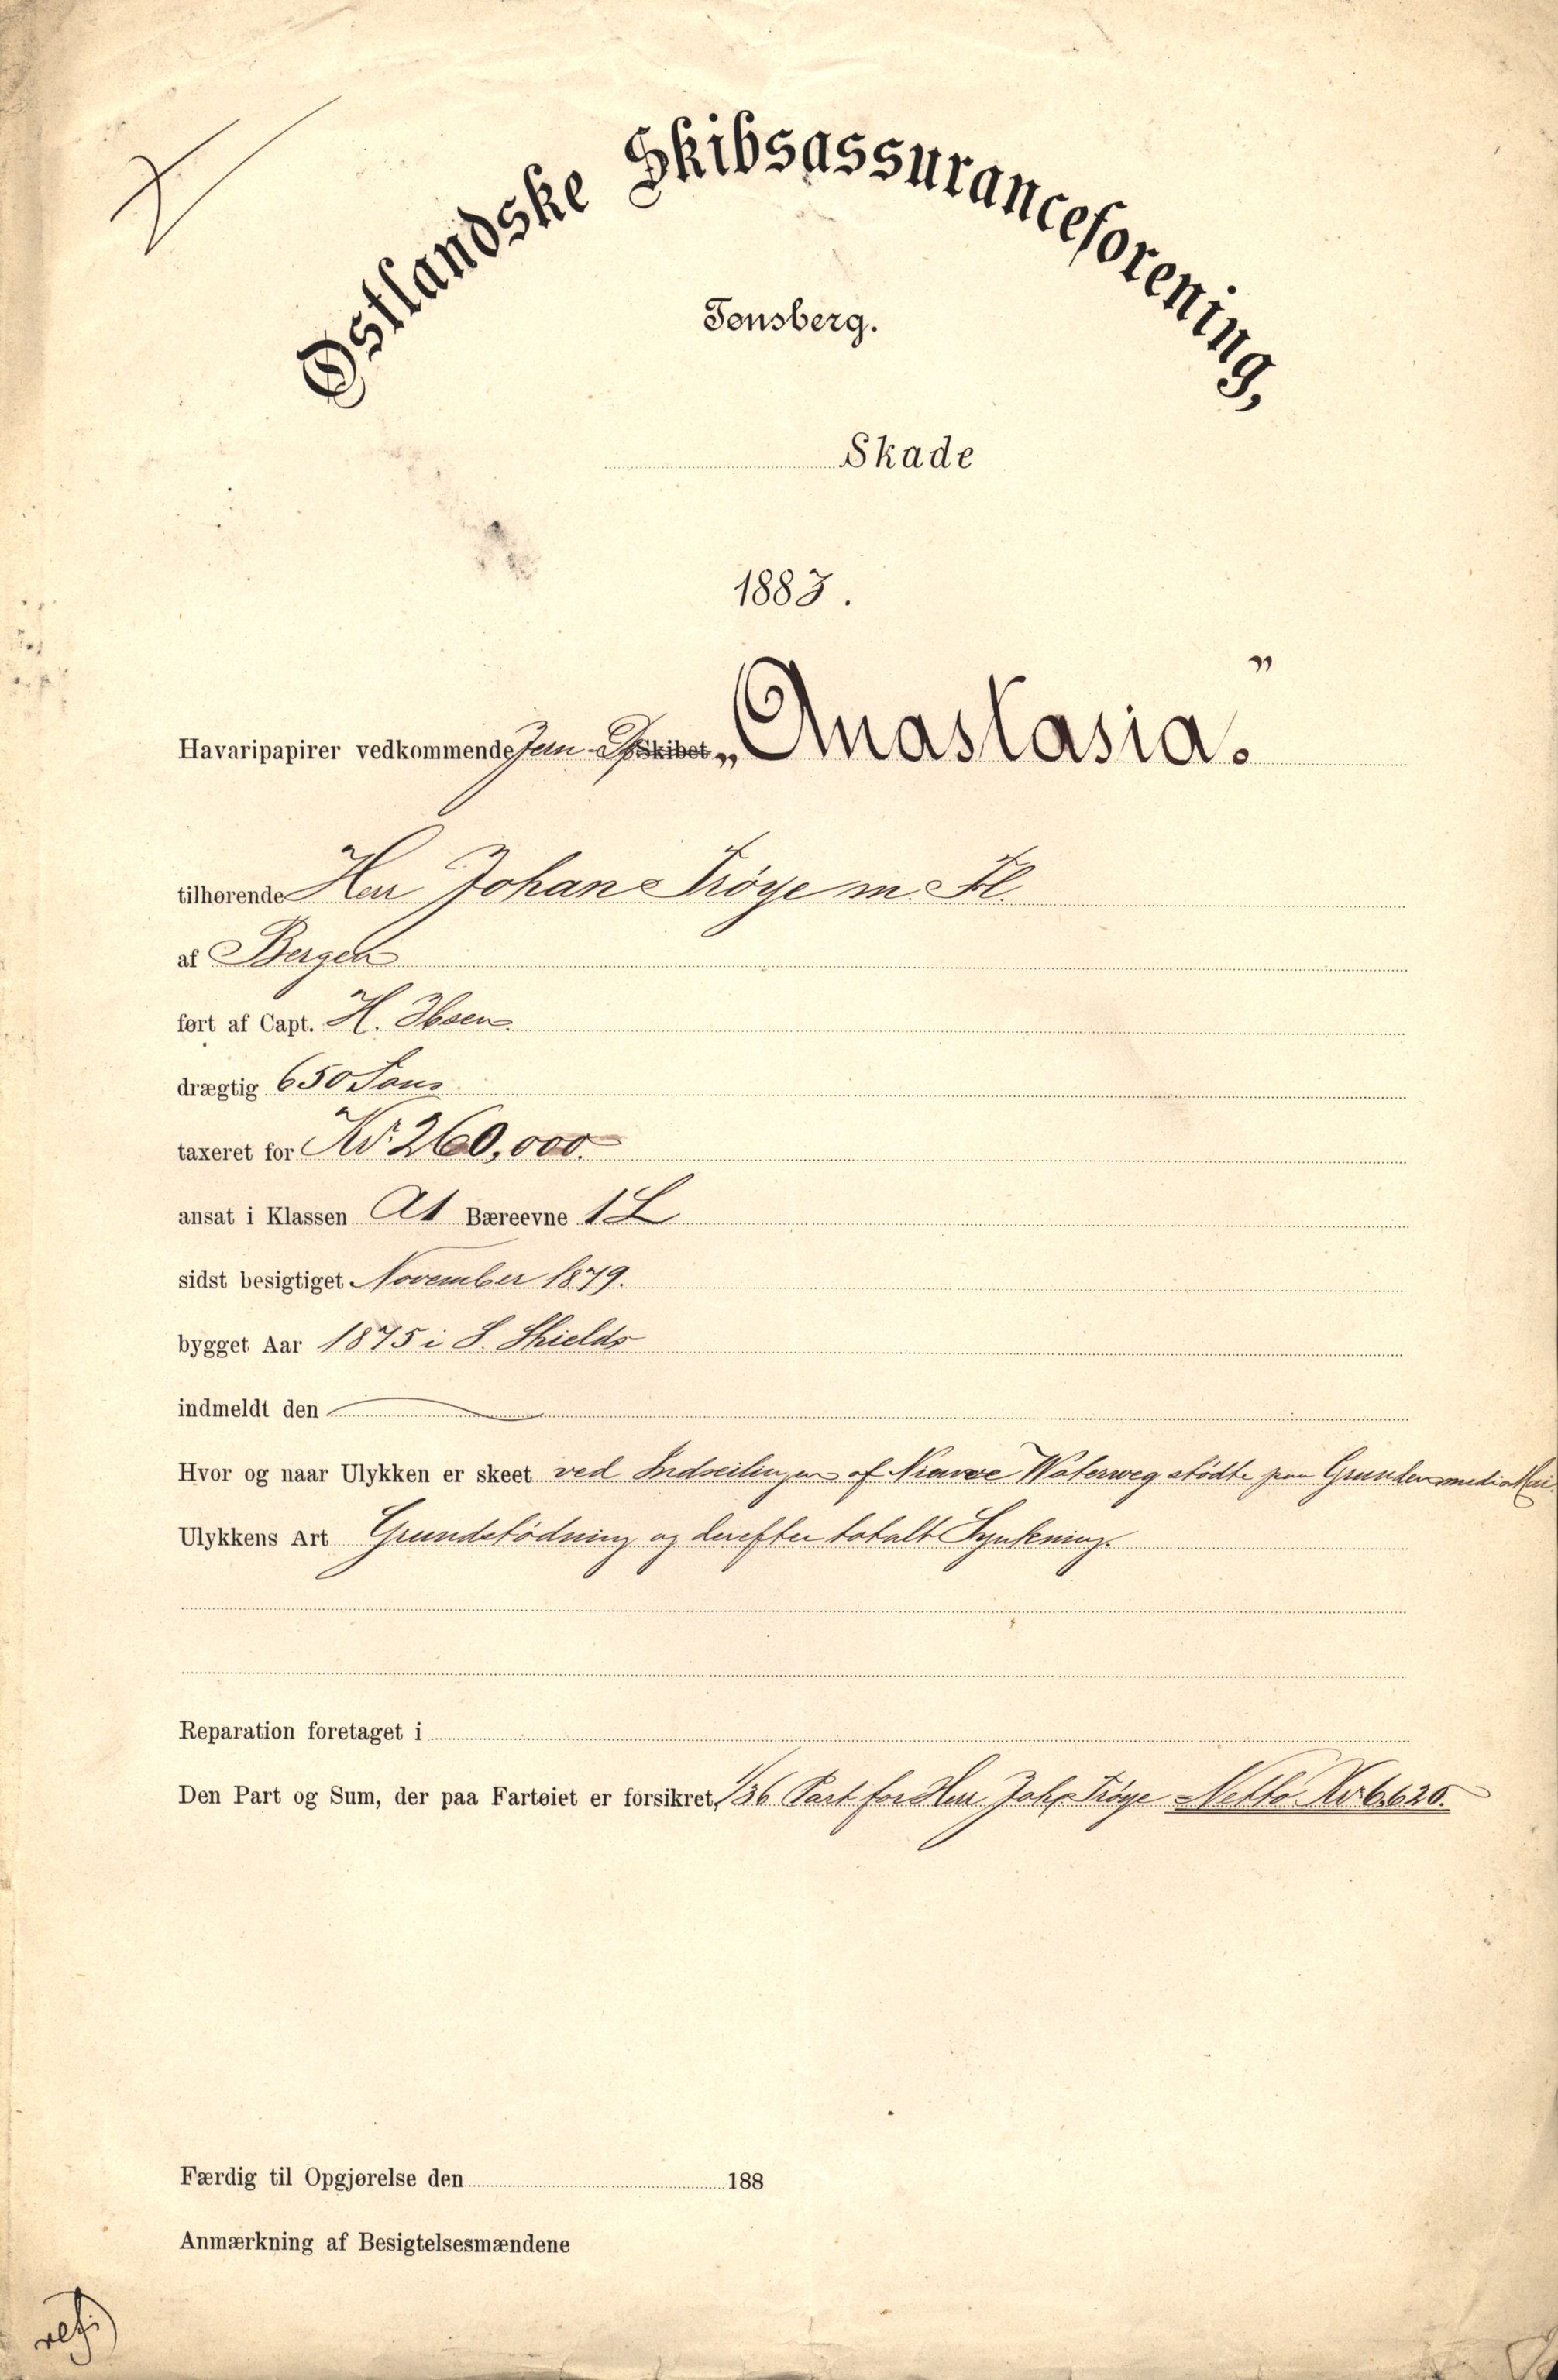 Østlandske Skibsassuranceforening,
Tønsberg.
Skade
1883.
Havaripapirer vedkommende Jern-Dp Skibet „Anastasia."
tilhørende Herr Johan Trøye m. Fl.
af Bergen
ført af Capt. H. Ibsen
drægtig 650 Tons
taxeret for Kr. 260,000.
ansat i Klassen A1 Bæreevne 1 L
sidst besigtiget November 1879.
bygget Aar 1875 i S. Shields
indmeldt den
Hvor og naar Ulykken er skeet ved Indseilingen af Nieuwe Waterweg stødte paa Grunden
Ulykkens Art Grundstødning og derefter totalt Synkning.
Reparation foretaget i
Den Part og Sum, der paa Fartøiet er forsikret, 1/36 Part for Herr Joh. Trøye Netto Kr. 6.620.
Færdig til Opgjørelse den 188
Anmærkning af Besigtelsesmændene